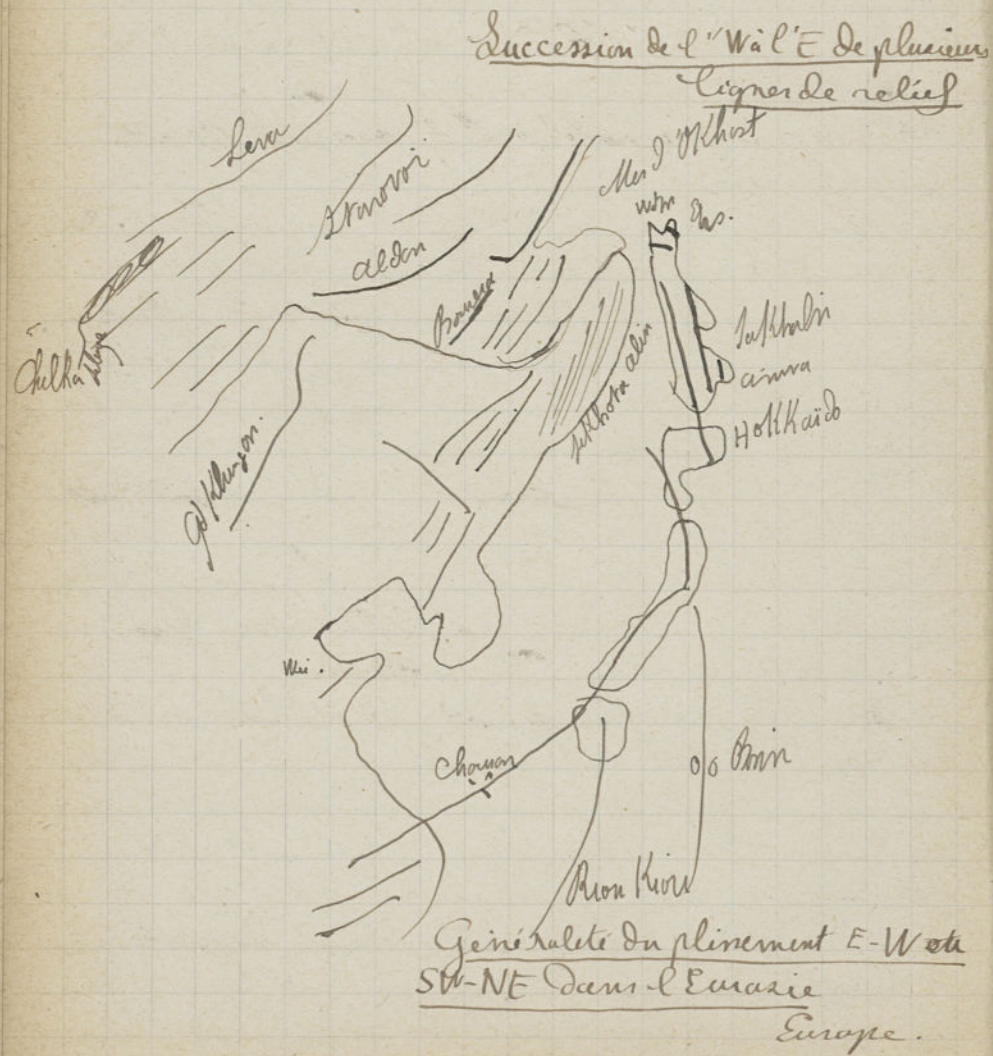 Succession de l'W à l'E de plusieurs
lignes de relief
Lena
Stanovoi
Mer d'Okhost
Aldan
Boureia
Sakhalin
aniwa
Hokkaïdo
sikhota alin
Gd Khingan.
Chousan
Bonin
Riou Kiou
Généralité du plissement E-W ou
SW-NE dans l'Eurasie
Europe.